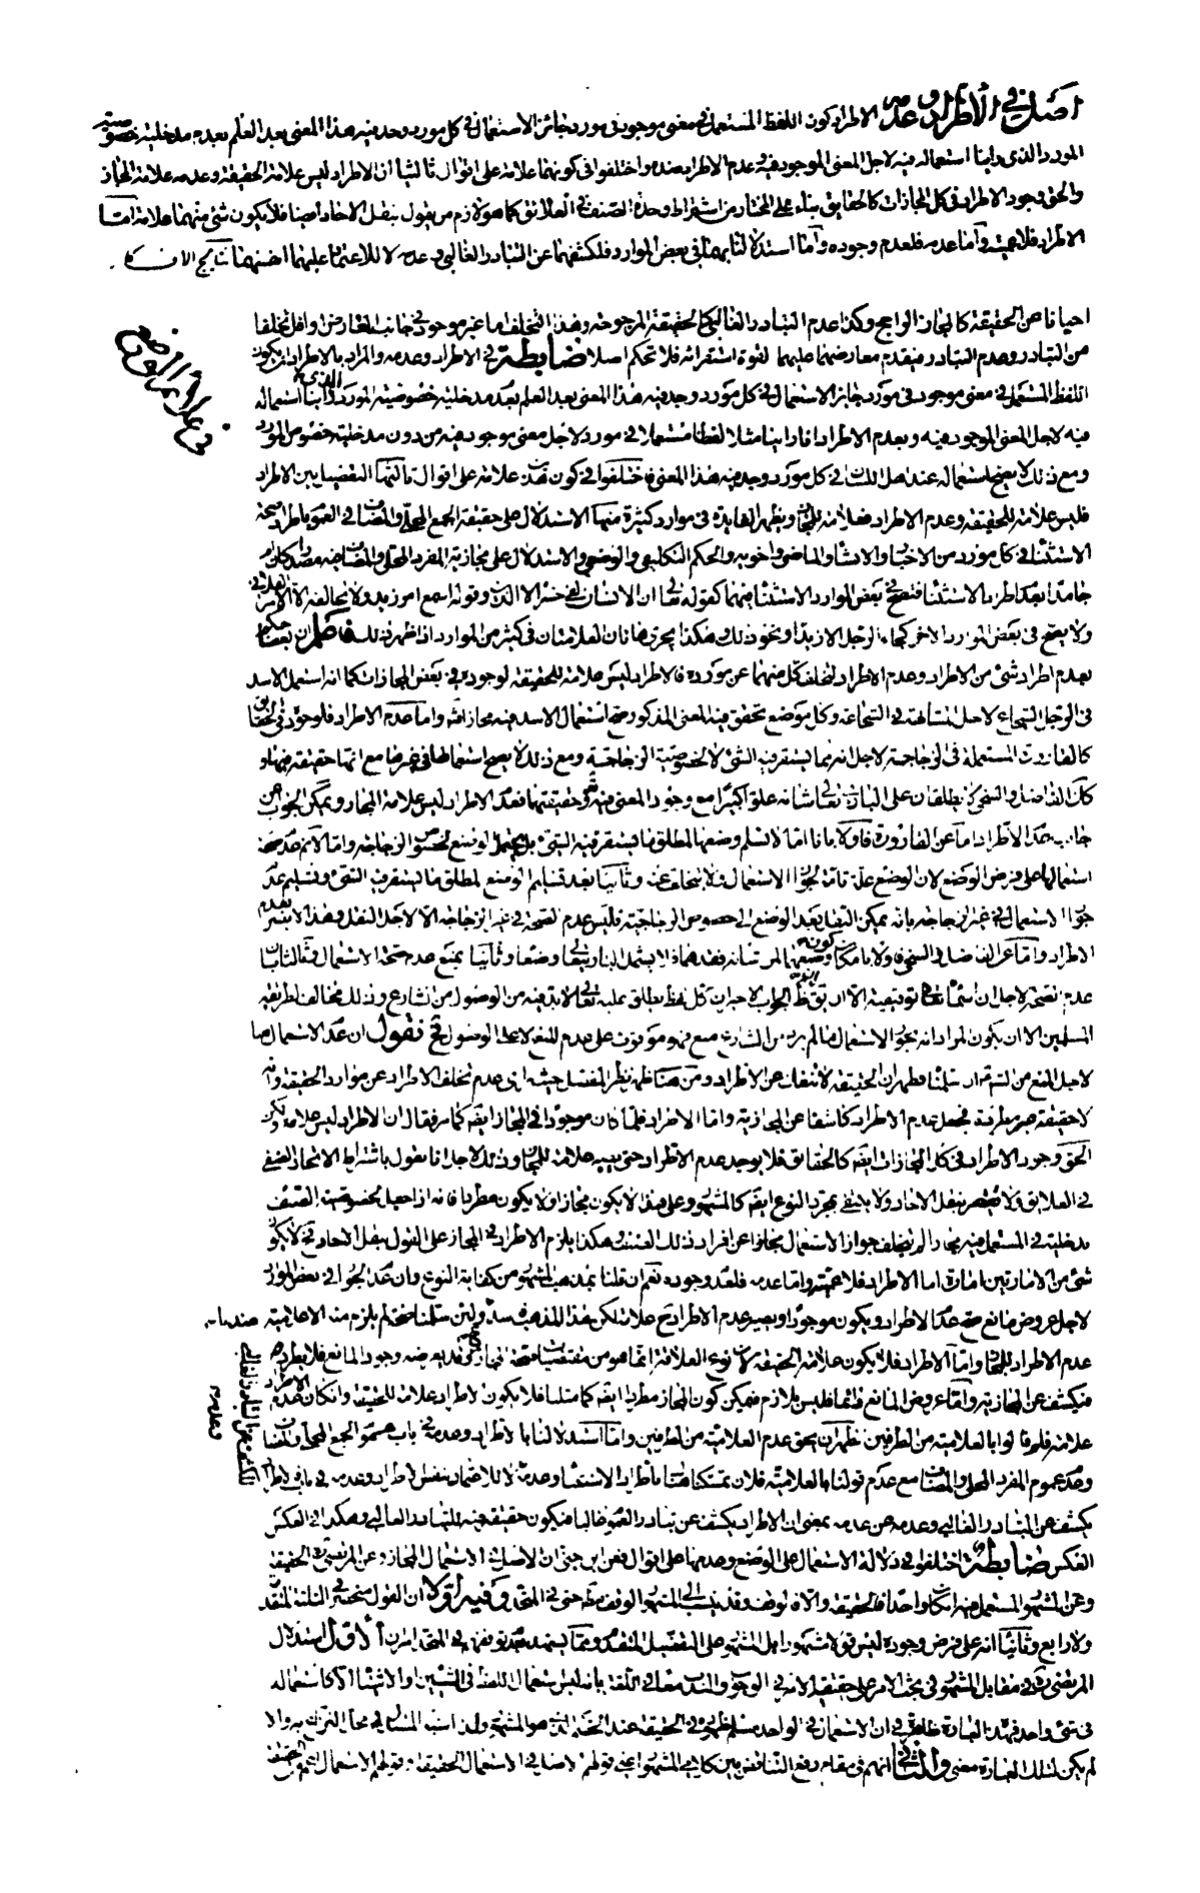 اصل في الاطراد وعدمه الاطراد كون اللفظ المستعمل في معنى موجود في مورد جائز الاستعمال في كل مورد وجد فيه هذا المعنى بعد العلم بعدم مدخلية خصوصية
المورد الذي راينا استعماله فيه لاجل المعنى الموجود فيه وعدم الاطراد ضده واختلفوا في كونهما علامة على اقوال ثالثها ان الاطراد ليس علامة الحقيقة وعدمه علامة المجاز
والحق وجود الاطراد في كل المجازات كالحقايق بناء على المختار من اشتراط وحدة الصنف في العلائق كما هو لازم من يقول بنقل الاحاد ايضا فلا يكون شئ منهما علامة اما
الاطراد فلاعميته واما عدمه فلعدم وجوده واما استدلالنا بهما في بعض الموارد فلكشفهما عن التبادر الغالبي وعدمه لا للاعتماد عليهما انفسهما
احيانا عن الحقيقة كالمجاز الراجح وكذا عدم التبادر الغالبي كالحقيقة المرجوحة وهذا التخلف اما غير موجود في جانب التعارض او اقل تخلفا
من التبادر وعدم التبادر فيقدم معارضهما عليهما لقوة استقرائه فلا تحكم اصلا ضابطة في الاطراد وعدمه والمراد بالاطراد ان يكون
اللفظ المستعمل في معنى موجود في مورد جايز الاستعمال في كل مورد وجد فيه هذا المعنى بعد العلم بعدم مدخلية خصوصية المورد الذي راينا استعماله
فيه لاجل المعنى الموجود فيه وبعدم الاطراد اذا راينا مثلا لفظا مستعملا في مورد لاجل معنى موجود فيه من دون مدخلية خصوص المورد
ومع ذلك لا يصح استعماله عند اهل اللسان في كل مورد وجد فيه هذا المعنى فاختلفوا في كون هذه علامة على اقوال ثالثها التفصيل بين الاطراد
فليس علامة للحقيقة وعدم الاطراد فعلامة للمجاز ويظهر الفايدة في موارد كثيرة منها الاستدلال على حقيقة الجمع المحلى والمضاف في العموم باطراد صحة
الاستثناء في كل مورد من الاخبار والانشاء والماضي واخويه والحكم التكليفي والوضعي والاستدلال على مجازية المفرد المحلى والمضاف
جامدا بعدم اطراد الاستثناء فتصح في بعض الموارد الاستثناء منهما كقوله تعالى ان الانسان لفي خسر الا الذين وقوله اسمع امر زيد ولا تخالفه الا الامر
ولا يصح في بعض الموارد الاخر كجاء الرجل الا زيدا ونحو ذلك وهكذا يجري هاتان العلامتان في كثير من الموارد اذا ظهر ذلك فاعلم ان بعضا حكم
بعدم اطراد شئ من الاطراد وعدم الاطراد لتخلف كل منهما عن مورده فالاطراد ليس علامة للحقيقة لوجوده في بعض المجازات كما انه استعمل الاسد
في الرجل الشجاع لاجل المشابهة في الشجاعة وكل موضع تحقق فيه المعنى المذكور صح استعمال الاسد فيه مجازا واما عدم الاطراد فلوجوده في الحقايق
كالقارورة المستعملة في الزجاجة لاجل انه مما يستقر فيه الشئ لا لخصوصية الزجاجية ومع ذلك لا يصح استعمالها في غيرها مع انها حقيقة فيها و
كك الفاضل والسخي لا يطلقان على الباري تعالى شانه علوا كبيرا مع وجود المعنى فيه وحقيقتهما فعدم الاطراد ليس علامة المجاز ويمكن الجواب عن
جانب عدم الاطراد اما عن القارورة فاولا بانا لا نسلم وضعها لمطلق ما يستقر فيه الشئ بل يحتمل الوضع لخصوص الزجاجة واما لا نسلم عدم صحة
استعمالها على فرض الوضع لان الوضع علة تامة لجواز الاستعمال فلا يتخلف عنه وثانيا بعد تسليم الوضع لمطلق ما يستقر فيه الشئ وتسليم عدم
جواز الاستعمال في غير الزجاجة بانه يمكن النقل بعد الوضع الى خصوص الزجاجية فليس عدم الصحة في غير الزجاجة الا لاجل النقل وهذا لا يضر بعدم
الاطراد واما عن الفاضل والسخي فاولا بامكان كون وضعهما لمن شانه فقد هما فلا يشمل الباري تعالى وضعا وثانيا بمنع عدم صحة الاستعمال وثالثا بان
عدم الصحة لاجل ان اسماء الله تعالى توقيفية الا ان يقال ظاهر الجواب الاخير ان كل لفظ يطلق عليه تعالى لا بد فيه من الوصول من الشارع وذلك مخالف لطريقة
المسلمين الا ان يكون المراد انه يجوز الاستعمال ما لم يرد من الشارع منع فهو موقوف على عدم المنع لا على الوصول فح نقول ان عدم الاستعمال هنا
لاجل المنع من الشرع سلمنا فظهر ان الحقيقة لا تنفك عن الاطراد ومن هنا ظهر نظر المفصل حيث راى عدم تخلف الاطراد عن موارد الحقيقة وانه
لا حقيقة غير مطردة فجعل عدم الاطراد كاشفا عن المجازية واما الاطراد فلما كان موجودا في المجاز ايضا كما مر فقال ان الاطراد ليس علامة ولكن
الحق وجود الاطراد في كل المجازات ايضا كالحقايق فلا يوجد عدم الاطراد حتى يصير علامة للمجاز وذلك لاجل انا نقول باشتراط الاتحاد الصنفي
في العلايق ولا نقتصر بنقل الاحاد ولا نكتفي بمجرد النوع ايضا كالمشهور وعلى هذا لا يكون مجاز ولا يكون مطردا فانه اذا حصل خصوصية الصنف
مدخلية في المستعمل فيه مجازا لم يتخلف جواز الاستعمال مجازا عن افراد ذلك الصنف وهكذا يلزم الاطراد في المجاز على القول بنقل الاحاد فح لا يكون
شئ من الامارتين امارة اما الاطراد فلاعميته واما عدمه فلعدم وجوده نعم ان قلنا بمذهب المشهور من كفاية النوع وان عدم الجواز في بعض الموارد
لاجل عروض مانع صح عدم الاطراد ويكون موجودا ويصير عدم الاطراد ح علامة لكن هذا المذهب فاسد ولئن سلمنا صحته لم يلزم منه الاعلامية
عدم الاطراد للمجاز واما الاطراد فلا يكون علامة الحقيقة لان نوع العلاقة انما هو من مقتضيات صحة المجاز وقد يعرضه وجود المانع فلا يطرد
فيكشف عن المجازية واما عروض المانع دائما فليس بلازم فيمكن كون المجاز مطردا ايضا كما مثلنا فلا يكون الاطراد علامة للحقيقة وان كان عدم الاطراد
علامة فلم قالوا بالعلامية من الطرفين ظهر ان الحق عدم العلامية من الطرفين واما استدلالنا بالاطراد وعدمه في باب عموم الجمع المحلى والمضاف
وعدم عموم المفرد المحلى والمضاف مع عدم قولنا بالعلامية فلان تمسكنا هنا باطراد الاستثناء وعدمه لا للاعتماد بنفس الاطراد وعدمه في باب الاطراد
يكشف عن التبادر الغالبي وعدمه عن عدمه بمعنى ان الاطراد يكشف عن تبادر العموم غالبا فيكون حقيقة فيه للتبادر الغالبي وهكذا في العكس
العكس ضابطة اختلفوا في دلالة الاستعمال على الوضع وعدمها على اقوال فعن ابن جني ان الاصل في الاستعمال المجاز وعن المرتضى الحقيقة
وعن المشهور المستعمل فيه ان كان واحدا فالحقيقة والا فالوقف وقد ينسب الى المشهور الوقف مطلقا حتى في المتحد وفيه اولا ان القول منحصر في الثلثة المتقدمة
ولا رابع وثانيا انه على فرض وجوده ليس قولا لمشهور بل المشهور على التفصيل المتقدم ومما يشهد بعدم توقفهم في المتحد امران الاول استدلال
المرتضى في مقابل المشهور في بحث الامر على حقيقة الامر في الوجوب والندب معا في اللغة بانه ليس استعمال اللفظ في الشيئين والاشياء الا كاستعماله
في شئ واحد فهذه العبارة ظاهرة في ان الاستعمال في الواحد مسلم ظهوره في الحقيقة عند الخصم الذي هو المشهور ولذا اشبه المسئلة في محل النزاع به والا
لم يكن لتلك العبارة معنى والثاني انهم في مقام رفع التناقض بين كلامي المشهور اعني قولهم الاصل في الاستعمال الحقيقة وقولهم الاستعمال اعم من الحقيقة